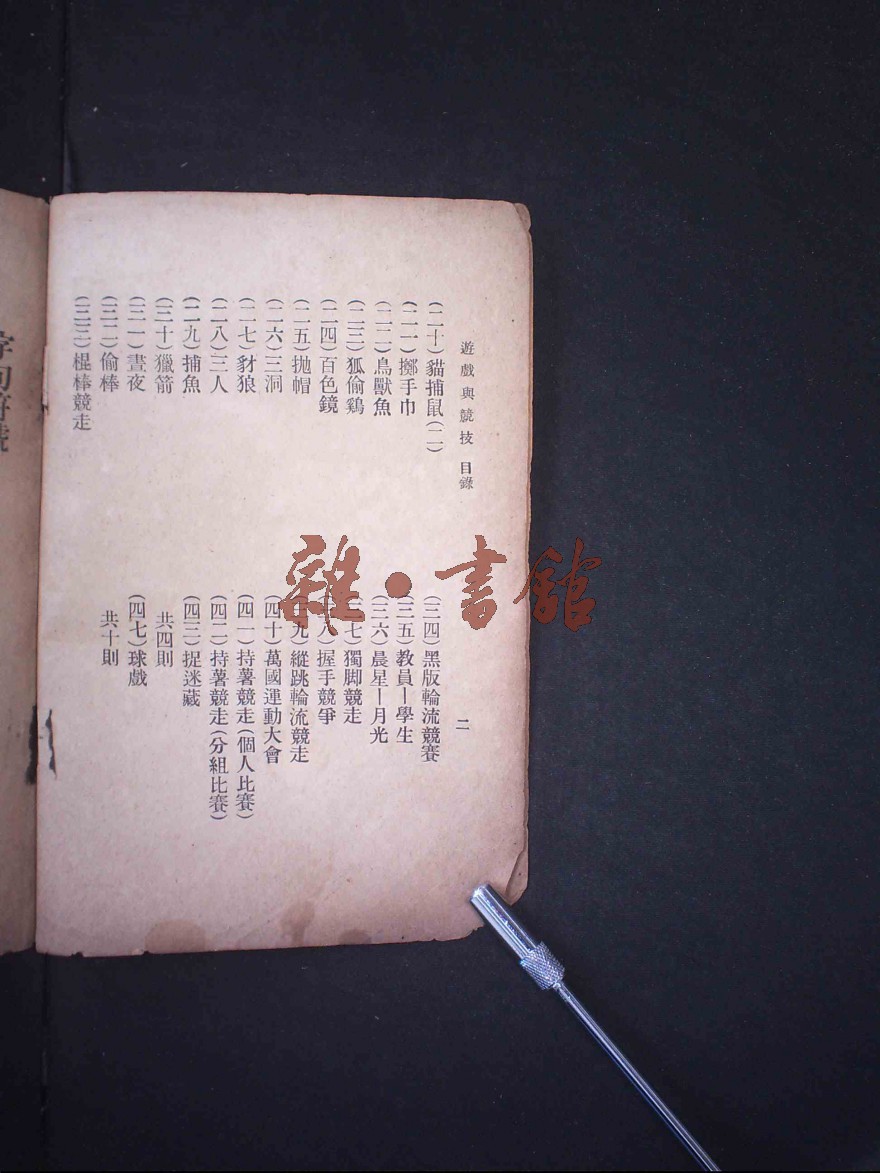 遊戲與競技 目錄
二
(二十)貓捕鼠(二)
(二一)擲手巾
(二二)鳥獸魚
(二三)狐偷鷄
(二四)百色鏡
(二五)拋帽
(二六)三洞
(二七)豺狼
(二八)三人
(二九)捕魚
(三十)獵箭
(三一)晝夜
(三二)偷棒
(三三)棍棒競走
(三四)黑版輪流競賽
(三五)教員—學生
(三六)晨星—月光
七)獨脚競走
八)握手競爭
九)縱跳輪流競走
(四十)萬國運動大會
(四一)持薯競走(個人比賽)
(四二)持薯競走(分組比賽)
(四三)捉迷藏
共四則
(四七)球戲
共十則
雜·書館